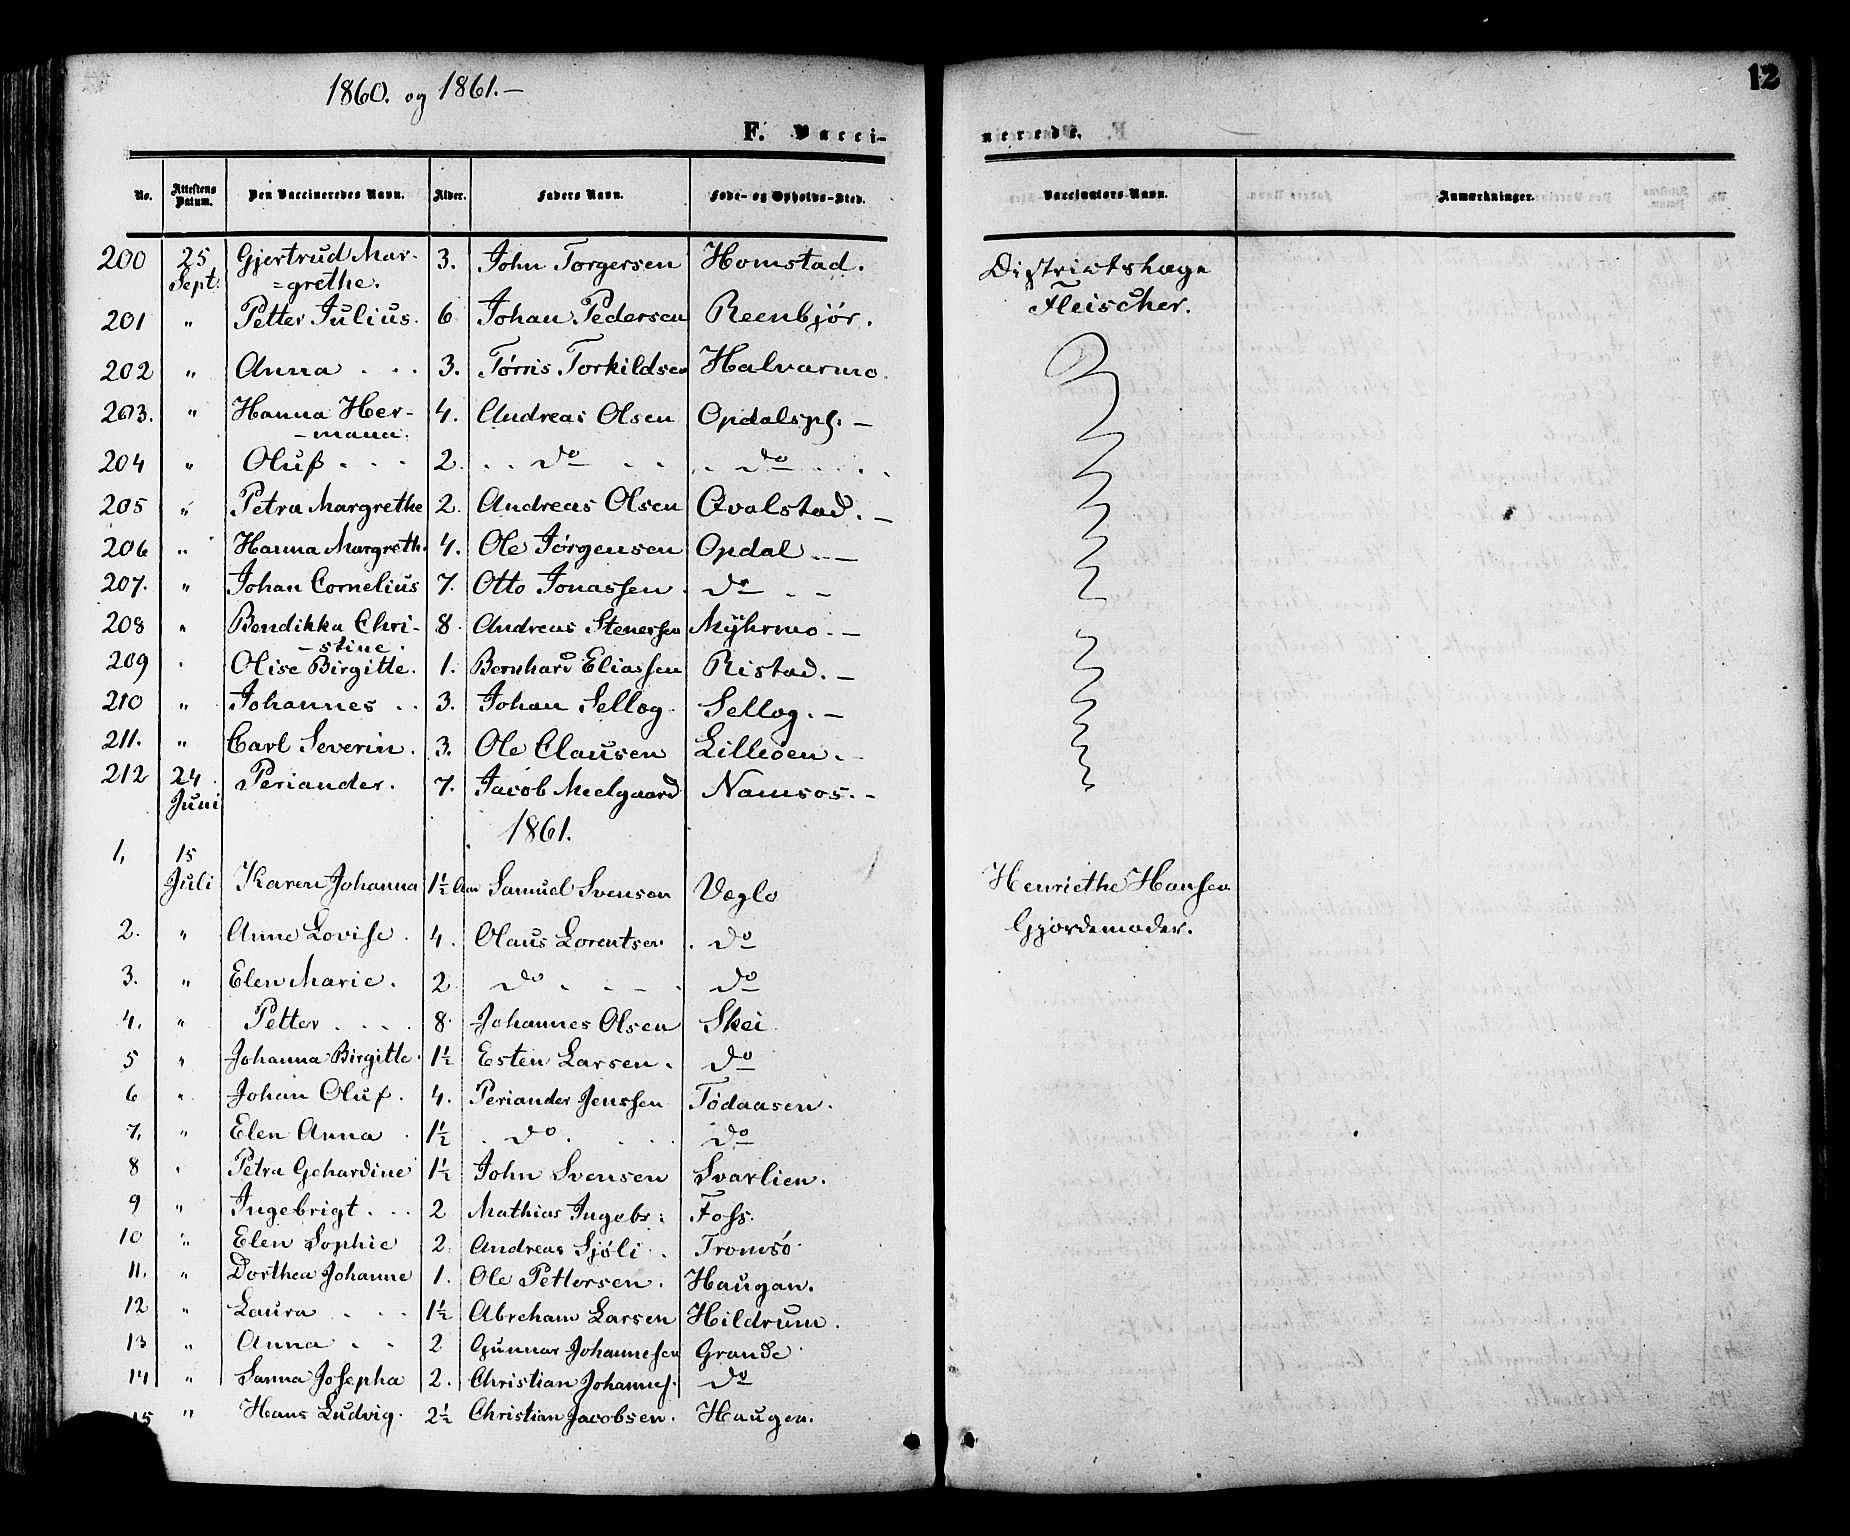 1860. og 1861.—
12
F. Vacci-
nerede.
No. Attestens Datum. Den Vaccineredes Navn. Alder. Faders Navn. Føde- og Opholds-Sted. Vaccinators Navn. Anmærkninger.
200 25 Sept. Gjertrud Mar-
=grethe. 3. John Torgersen Homstad. Distriktslæge
Fleischer.
201 " Petter Julius. 6 Johan Pedersen Reenbjör.
202 " Anna . . . 3. Tørris Torkildsen Halvarmo.
203. " Hanna Her-
-mana. 4. Andreas Olsen Opdalspl. —
204 " Oluf . . . 2. . . do . . . . do . . . .
205 " Petra Margrethe 2. Andreas Olsen Qvalstad. —
206 " Hanna Margreth. 4. Ole Jørgensen Opdal . —
207. " Johan Cornelius 7. Otto Jonassen . do . —
208 " Bendikka Chri-
-stine. 8. Andreas Stenersen Myhrmo. —
209 " Olise Birgitte. 1. Bernhard Eliassen Ristad. —
210 " Johannes . . 3. Johan Sellæg. Sellæg. —
211. " Carl Severin . 3. Ole Clausen Lilleøen. —
212 24 Juni Periander. 7. Jacob Meelgaard Namsos. —
1861.
1, 15 Juli Karen Johanna 1½ Aar Samuel Svensen Veglo Henriethe Hansen
Gjordemoder.
2. " Anne Lovise . 4. Olaus Lorentsen . do
3. " Elen Marie . 2 do . . . . do
4. " Petter . . . . 8. Johannes Olsen Skei
5 " Johanna Birgitte. 1½ Esten Larsen . do
6 " Johan Oluf . 4. Periander Jenssen Tödaasen.
7. " Elen Anna . 1½ . do . . . . do
8 " Petra Gehardine 1½ John Svensen Svarlien.
9 " Ingebrigt . . . 2 Mathias Ingebr: Foss.
10 " Elen Sophie 2. Andreas Sjöli . Tromsö
11. " Dorthea Johanne 1. Ole Pettersen . Haugan.
12 " Laura . . . 1½ Abreham Larsen Hildrum .
13 " Anna . . 2 Gunnar Johannesen Grande
14 " Sanna Josepha 2. Christian Johannes. do
15 " Hans Ludvig. 2½ Christian Jacobsen. Haugen.